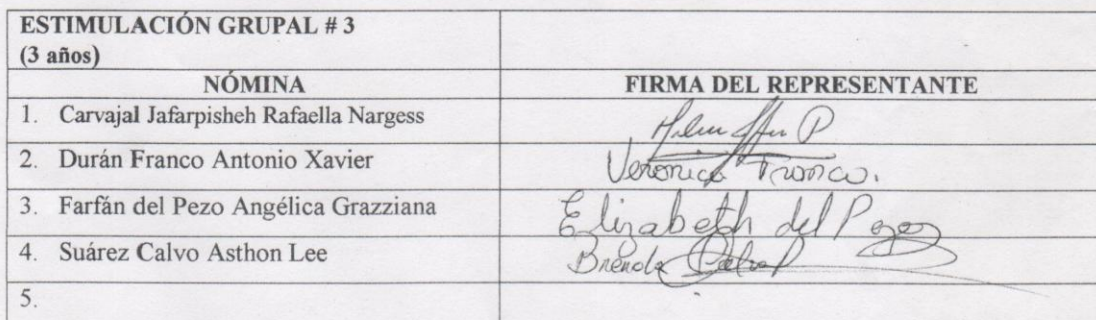 ESTIMULACIÓN GRUPAL # 3
(3 años)
NÓMINA FIRMA DEL REPRESENTANTE
1. Carvajal Jafarpisheh Rafaella Nargess
2. Durán Franco Antonio Xavier Veronica Franco.
3. Farfán del Pezo Angélica Grazziana Elizabeth del Pezo
4. Suárez Calvo Asthon Lee Brenda Calvo
5.